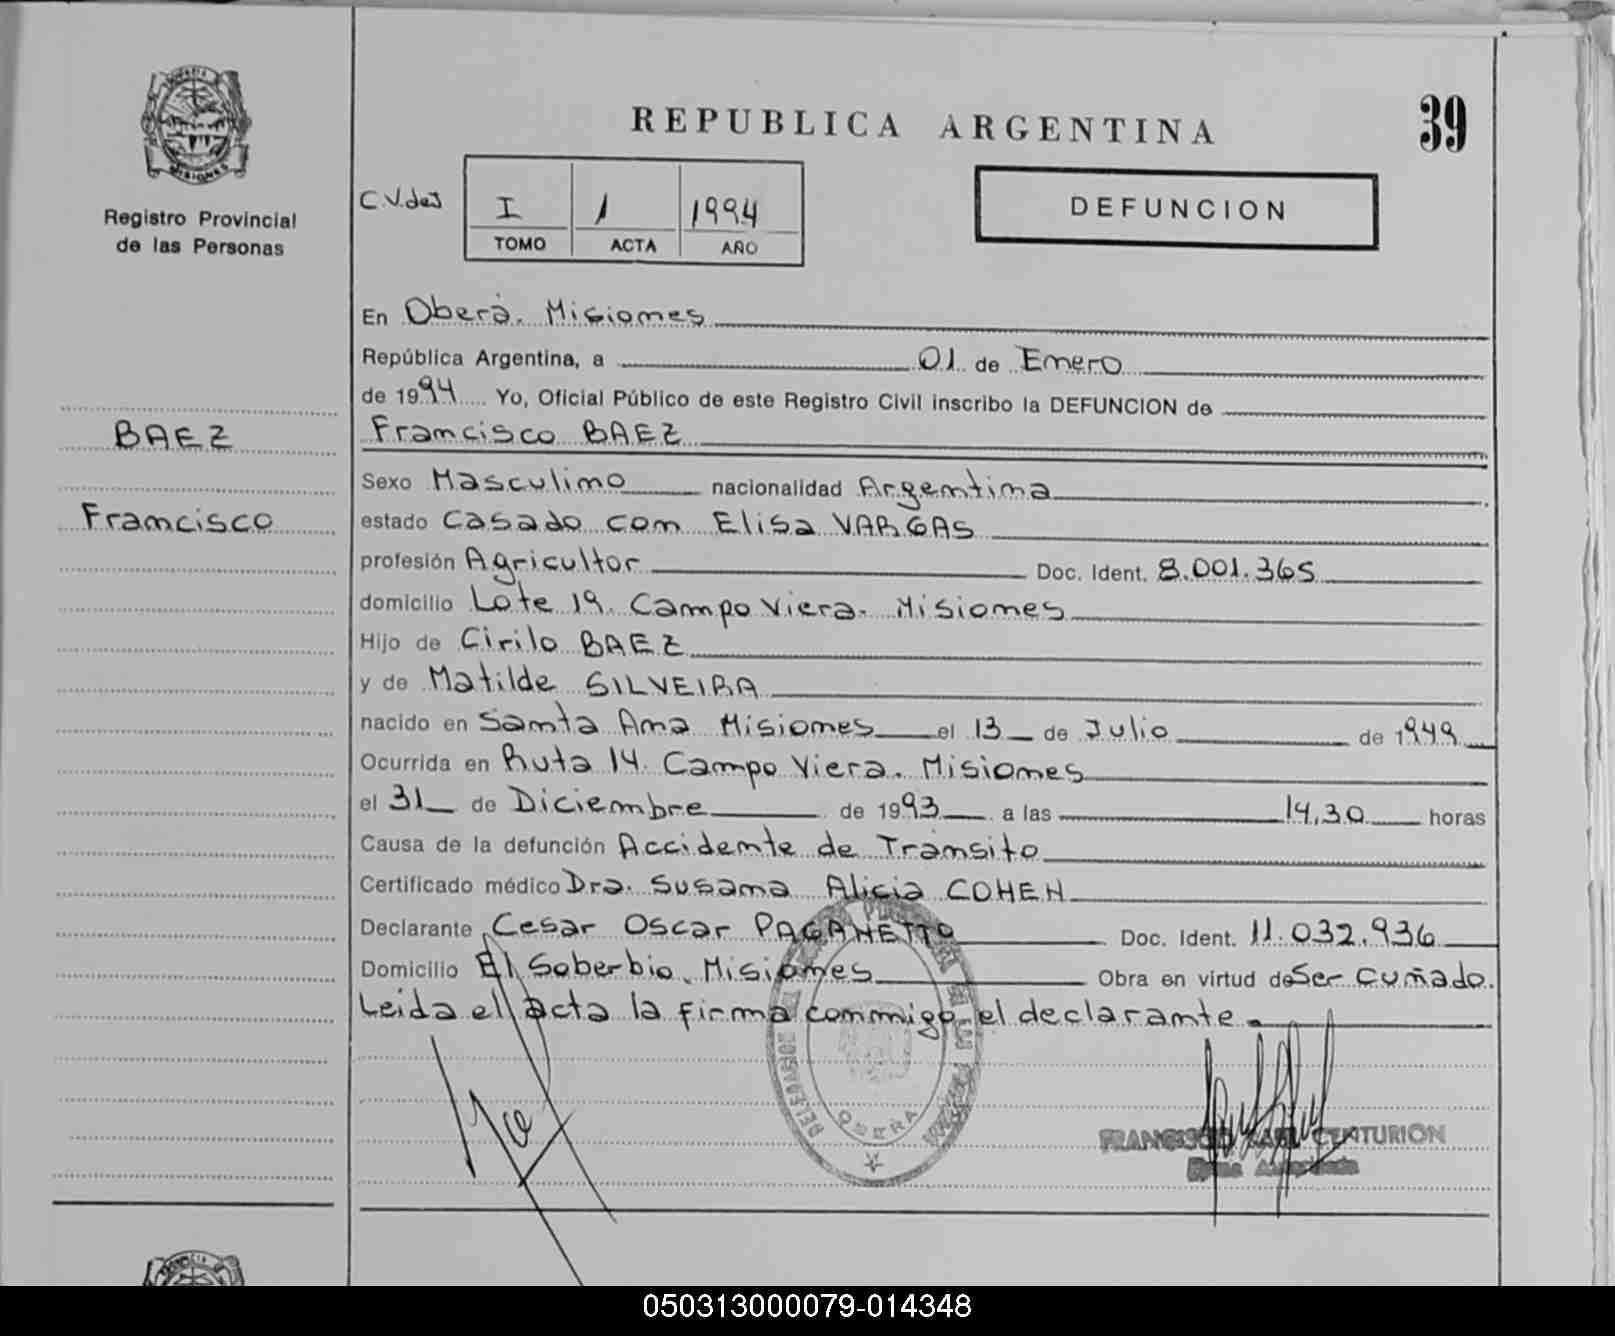 PROVINCIA
MISIONES
Registro Provincial
de las Personas
BAEZ
Francisco
REPUBLICA ARGENTINA
39
C.V.des
I 1 1994
TOMO ACTA AÑO
DEFUNCION
En Oberá. Misiones
República Argentina, a 01 de Enero
de 1994 Yo, Oficial Público de este Registro Civil inscribo la DEFUNCION de
Francisco BAEZ
Sexo Masculino nacionalidad Argentina
estado casado con Elisa VARGAS
profesión Agricultor Doc. Ident. 8.001.365
domicilio Lote 19. Campo Viera. Misiones
Hijo de Cirilo BAEZ
y de Matilde SILVEIRA
nacido en Santa Ana Misiones el 13 de Julio de 1949
Ocurrida en Ruta 14. Campo Viera. Misiones
el 31 de Diciembre de 1993 a las 14,30 horas
Causa de la defunción Accidente de Tránsito
Certificado médico Dra. Susana Alicia COHEN
Declarante Cesar Oscar PAGANETTO Doc. Ident. 11.032.936
Domicilio El Soberbio. Misiones Obra en virtud de Ser cuñado.
Leida el acta la firma conmigo el declarante.
OBERA
CENTURION
050313000079-014348